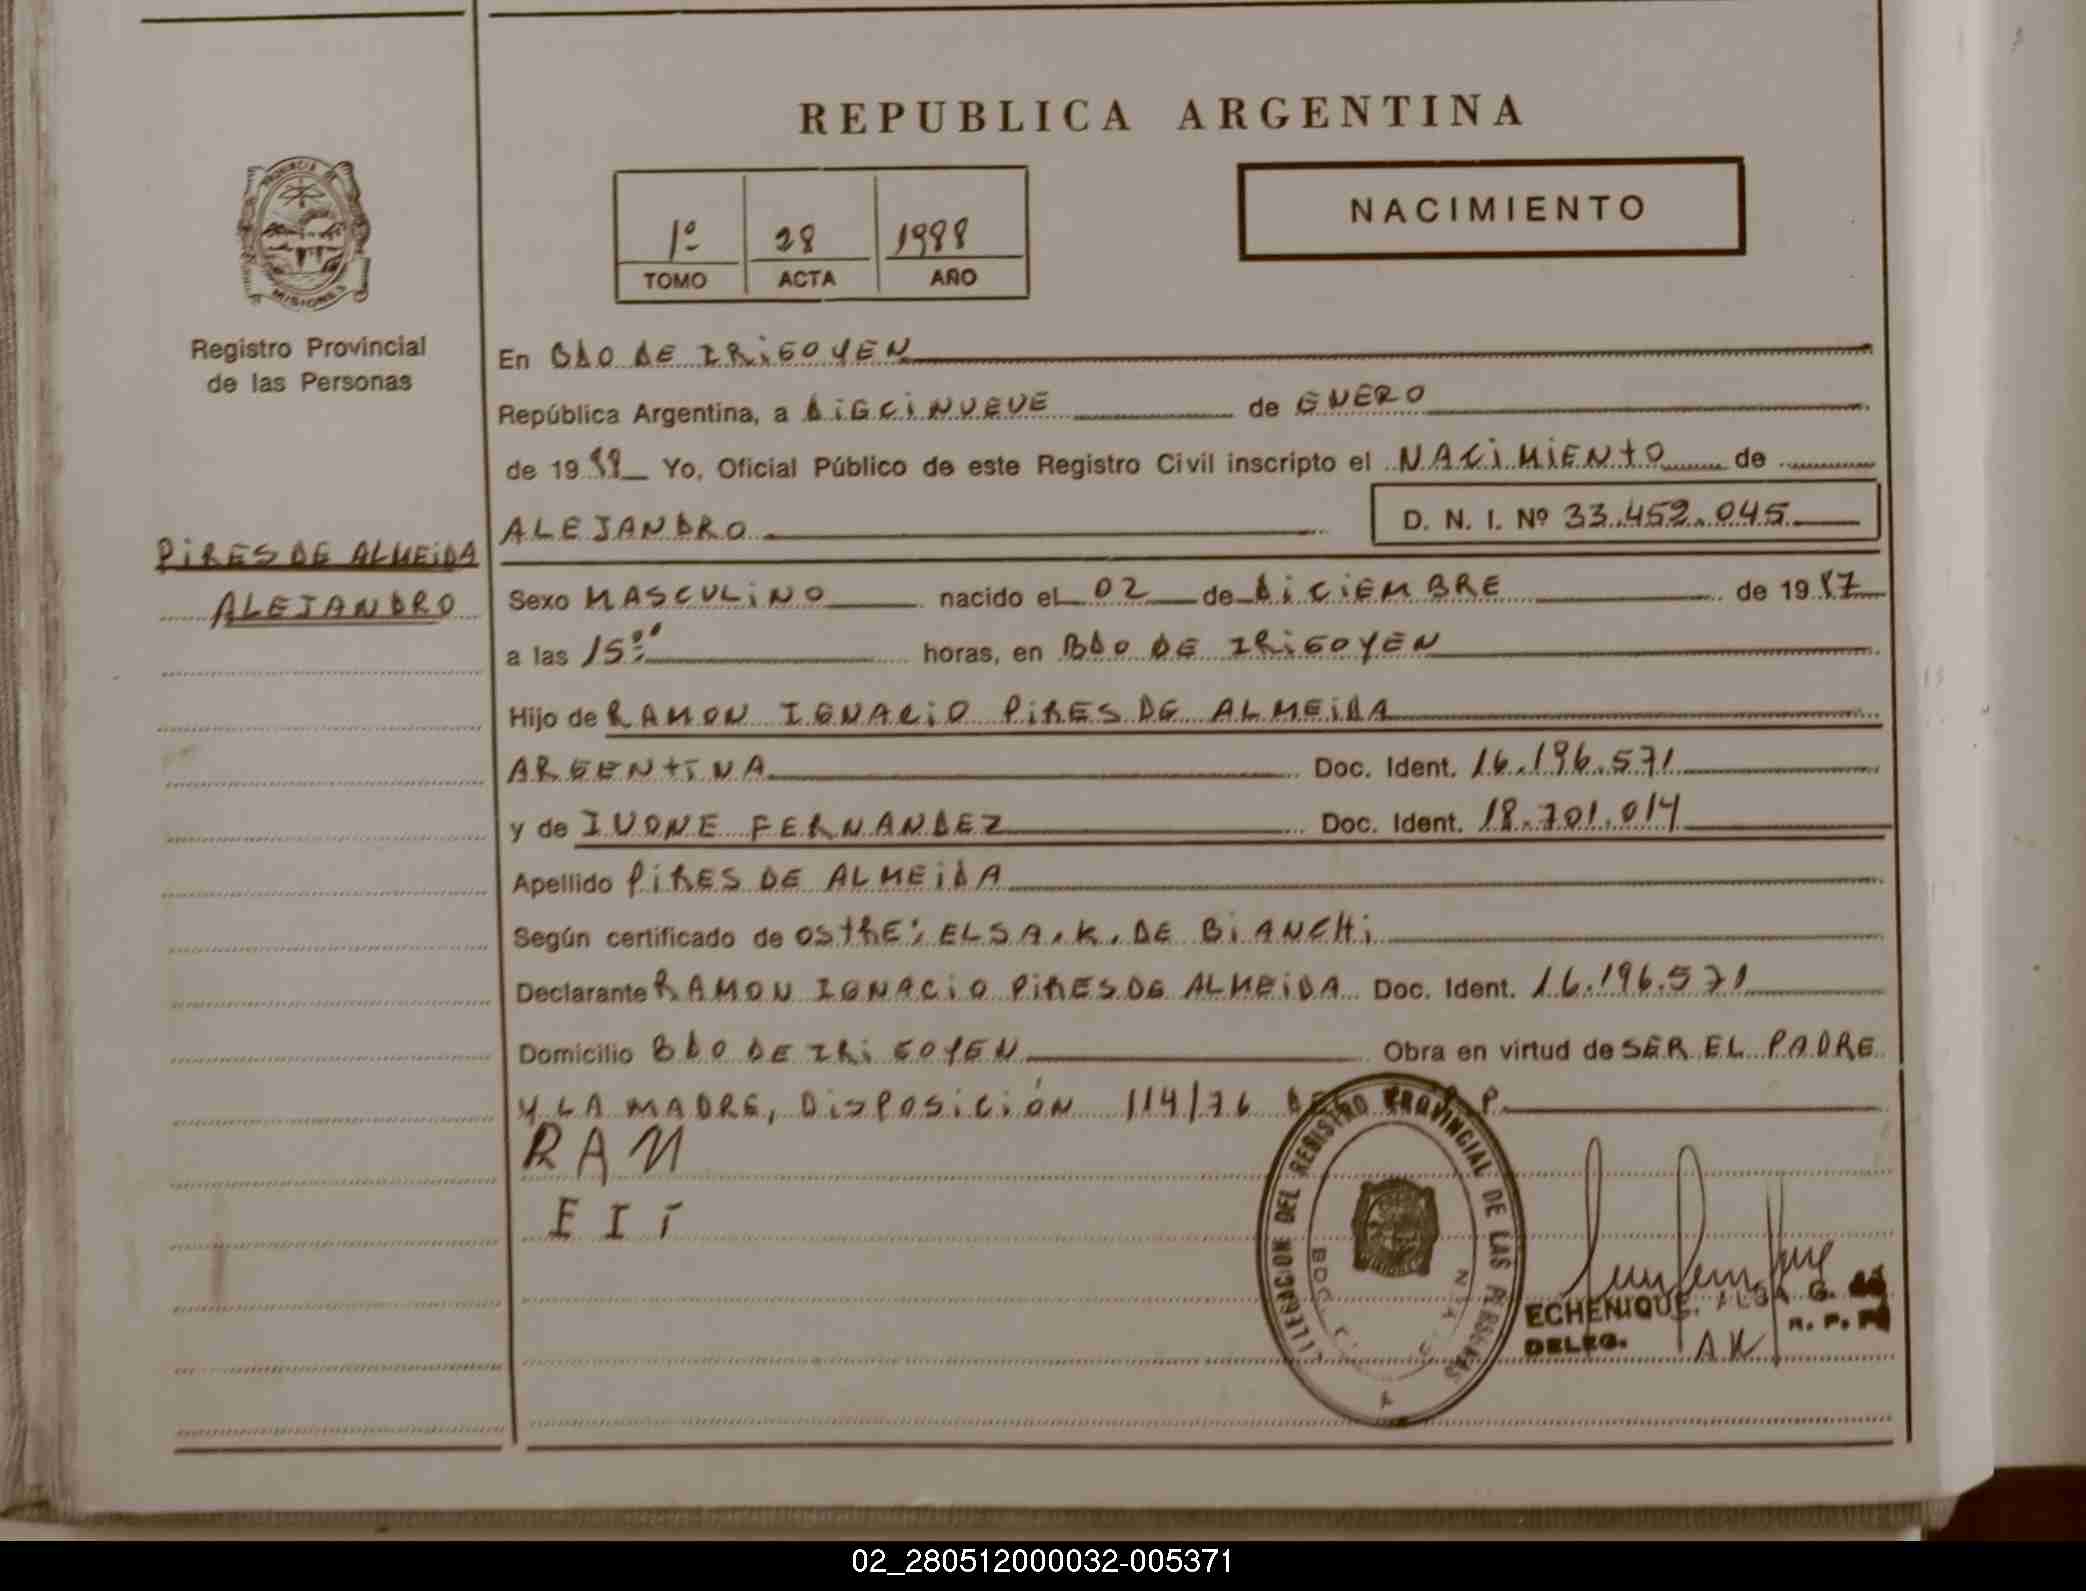 REPUBLICA ARGENTINA
PROVINCIA DE
MISIONES
Registro Provincial
de las Personas
PIRES DE ALMEIDA
ALEJANDRO
1º 28 1988
TOMO ACTA AÑO
NACIMIENTO
En BDO DE IRIGOYEN
República Argentina, a DIECINUEVE de ENERO
de 1988 Yo, Oficial Público de este Registro Civil inscripto el NACIMIENTO de
ALEJANDRO D. N. I. Nº 33.452.045
Sexo MASCULINO nacido el 02 de DICIEMBRE de 1987
a las 15:00 horas, en BDO DE IRIGOYEN
Hijo de RAMON IGNACIO PIRES DE ALMEIDA
ARGENTINA Doc. Ident. 16.196.571
y de IVONE FERNANDEZ Doc. Ident. 18.701.014
Apellido PIRES DE ALMEIDA
Según certificado de OSTRE; ELSA.K. DE BIANCHI
Declarante RAMON IGNACIO PIRES DE ALMEIDA Doc. Ident. 16.196.571
Domicilio BDO DE IRIGOYEN Obra en virtud de SER EL PADRE
Y LA MADRE, DISPOSICIÓN 114/76 P.
RAM
DELEGACION DEL REGISTRO PROVINCIAL DE LAS PERSONAS
ECHENIQUE, G.
DELEG. R. P. P.
02_280512000032-005371